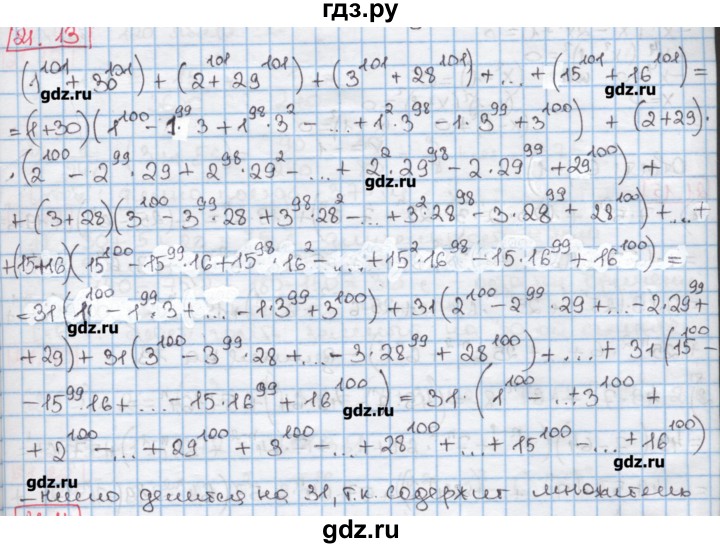 гдз.ру
21.13
(1^101 + 30^101) + (2 + 29^101)^101 + (3^101 + 28^101) + ... + (15^101 + 16^101) =
= (1+30)(1^100 - 1^99·3 + 1^98·3^2 - ... + 1^2·3^98 - 1·3^99 + 3^100) + (2+29)·
·(2^100 - 2^99·29 + 2^98·29^2 - ... + 2^2·29^98 - 2·29^99 + 29^100) +
+ (3+28)(3^100 - 3^99·28 + 3^98·28^2 - ... + 3^2·28^98 - 3·28^99 + 28^100) + ... +
+(15+16)(15^100 - 15^99·16 + 15^98·16^2 - ... + 15^2·16^98 - 15·16^99 + 16^100) =
= 31(1^100 - 1^99·3 + ... - 1·3^99 + 3^100) + 31(2^100 - 2^99·29 + ... - 2·29^99 +
+ 29) + 31(3^100 - 3^99·28 + ... - 3·28^99 + 28^100) + ... + 31(15^100 -
- 15^99·16 + ... - 15·16^99 + 16^100) = 31·(1^100 - ... + 3^100 +
+ 2^100 - ... + 29^100 + 3^100 - ... + 28^100 + ... + 15^100 - ... + 16^100)
- число делится на 31, т.к. содержит множитель
gdz.ru
gdz.ru
gdz.ru
gdz.ru
gdz.ru
gdz.ru
gdz.ru
gdz.ru
gdz.ru
gdz.ru
gdz.ru
gdz.ru